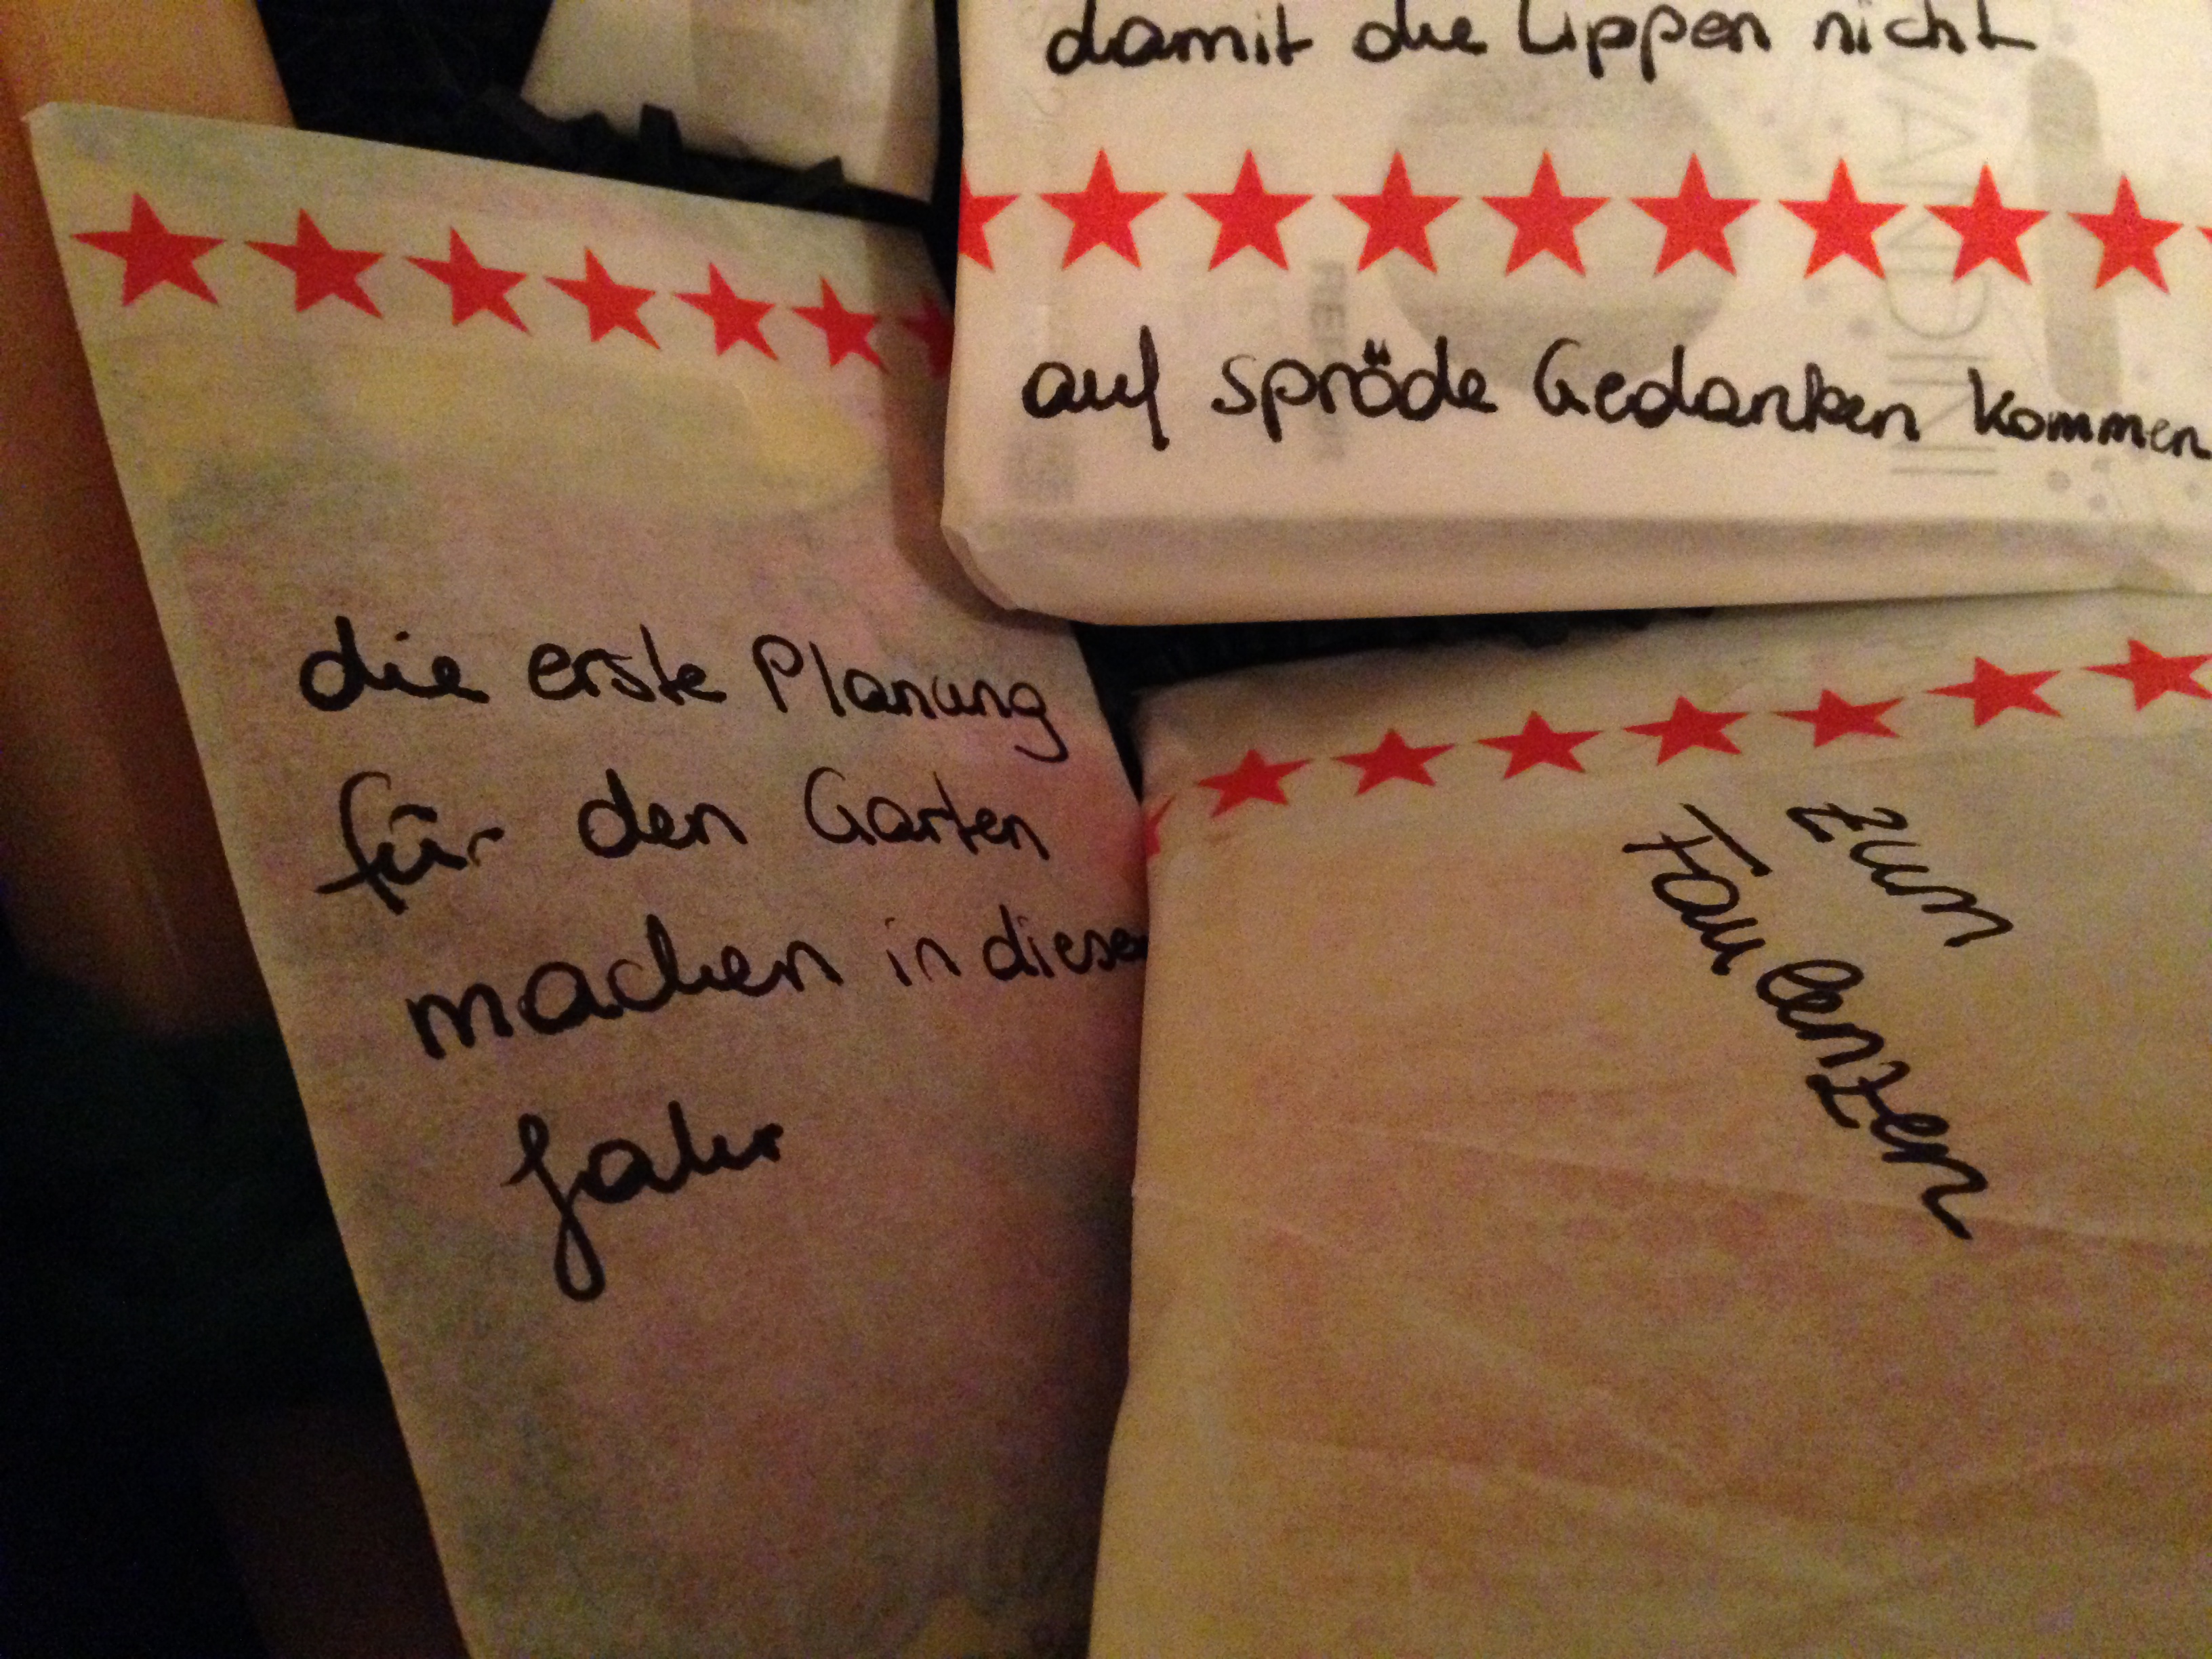 damit die Lippen nicht
auf spröde Gedanken kommen
die erste Planung
für den Garten
machen in diesem
Jahr
zum
Faulenzen
VANDINI